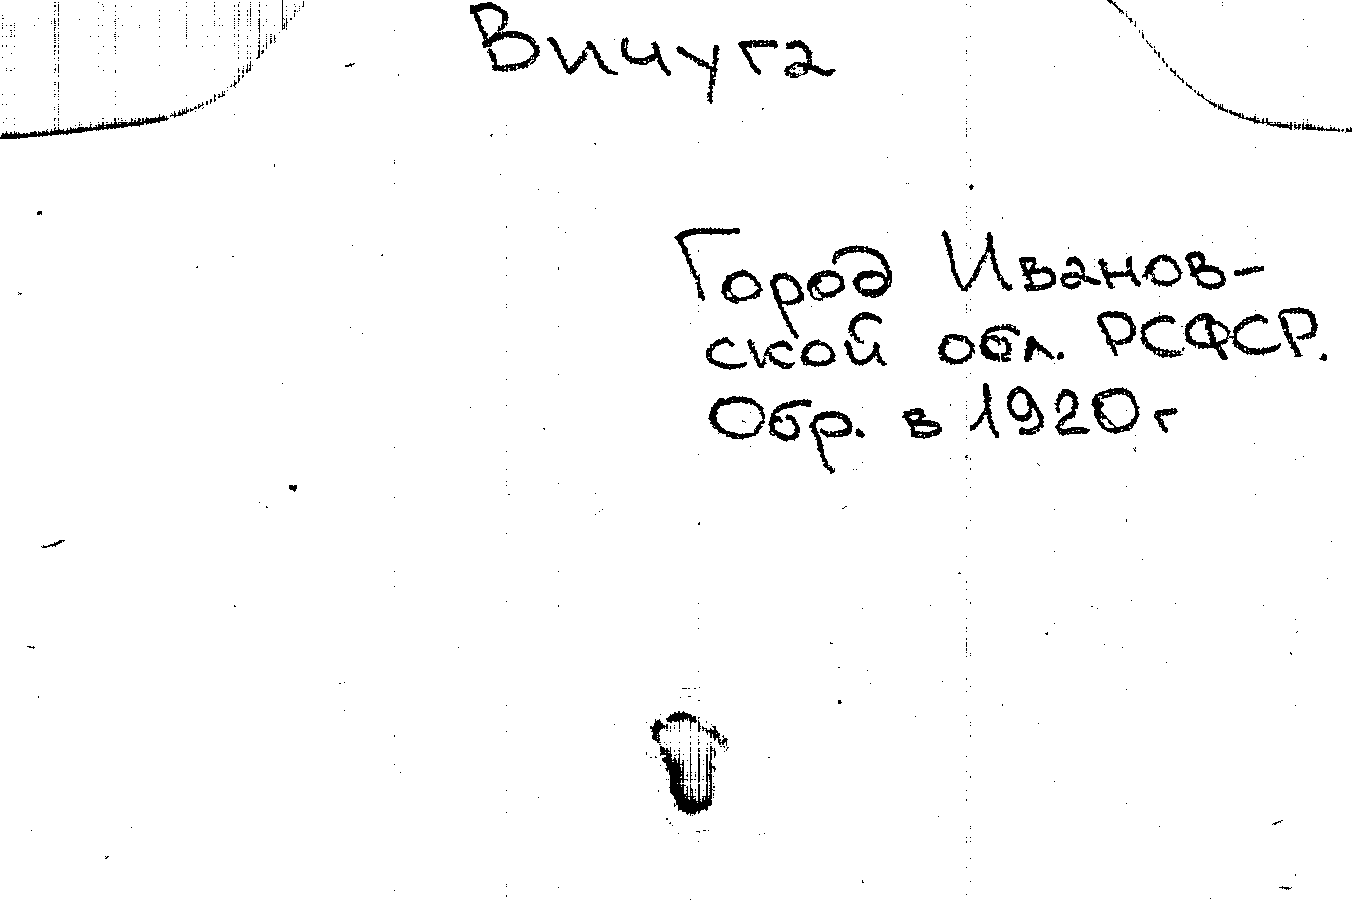 Вичуга
Город Иванов-
ской обл. РСФСР.
Обр. в 1920г